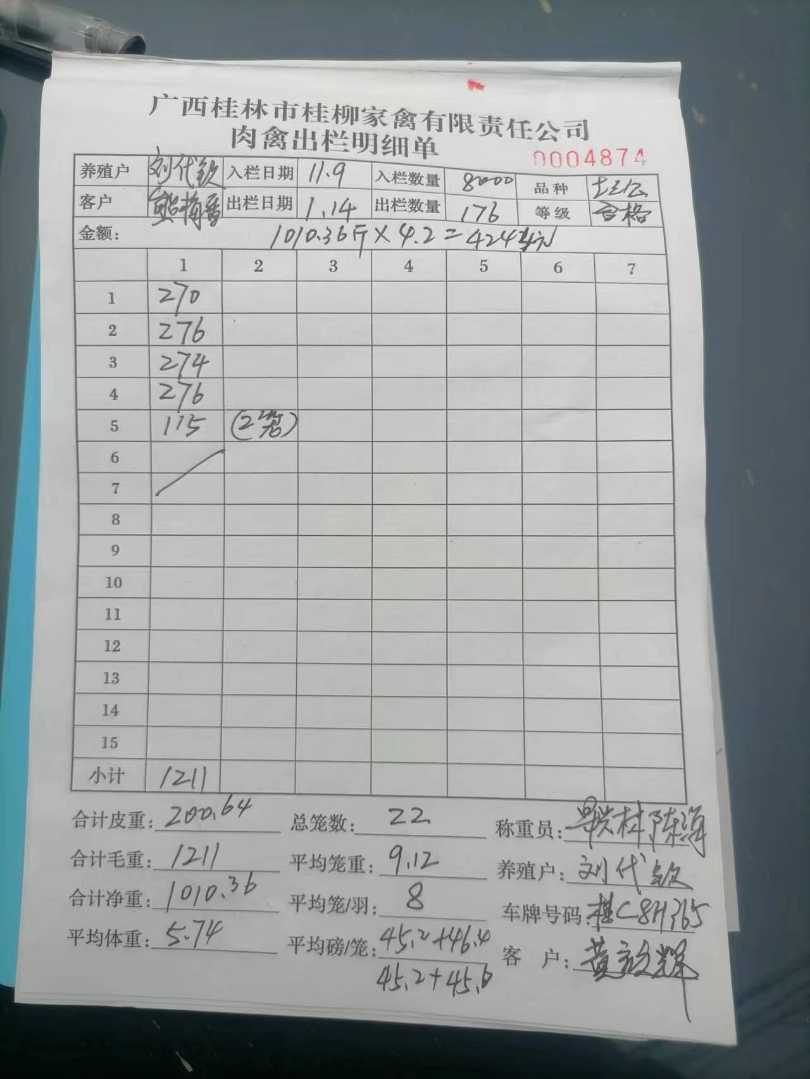 广西桂林市桂柳家禽有限责任公司
肉禽出栏明细单
0004874
养殖户 刘代钦 入栏日期 11.9 入栏数量 8000 品种
客户 出栏日期 1.14 出栏数量 176 等级 合格
金额: 1010.36斤×4.2=424
1 2 3 4 5 6 7
1 270
2 276
3 274
4 276
5 115 (2笼)
6
7
8
9
10
11
12
13
14
15
小计 1211
合计皮重: 200.64 总笼数: 22 称重员:
合计毛重: 1211 平均笼重: 9.12 养殖户: 刘代钦
合计净重: 1010.36 平均笼/羽: 8 车牌号码: 桂C8H365
平均体重: 5.74 平均磅/笼: 45.2+46.4 客户:
45.2+45.6